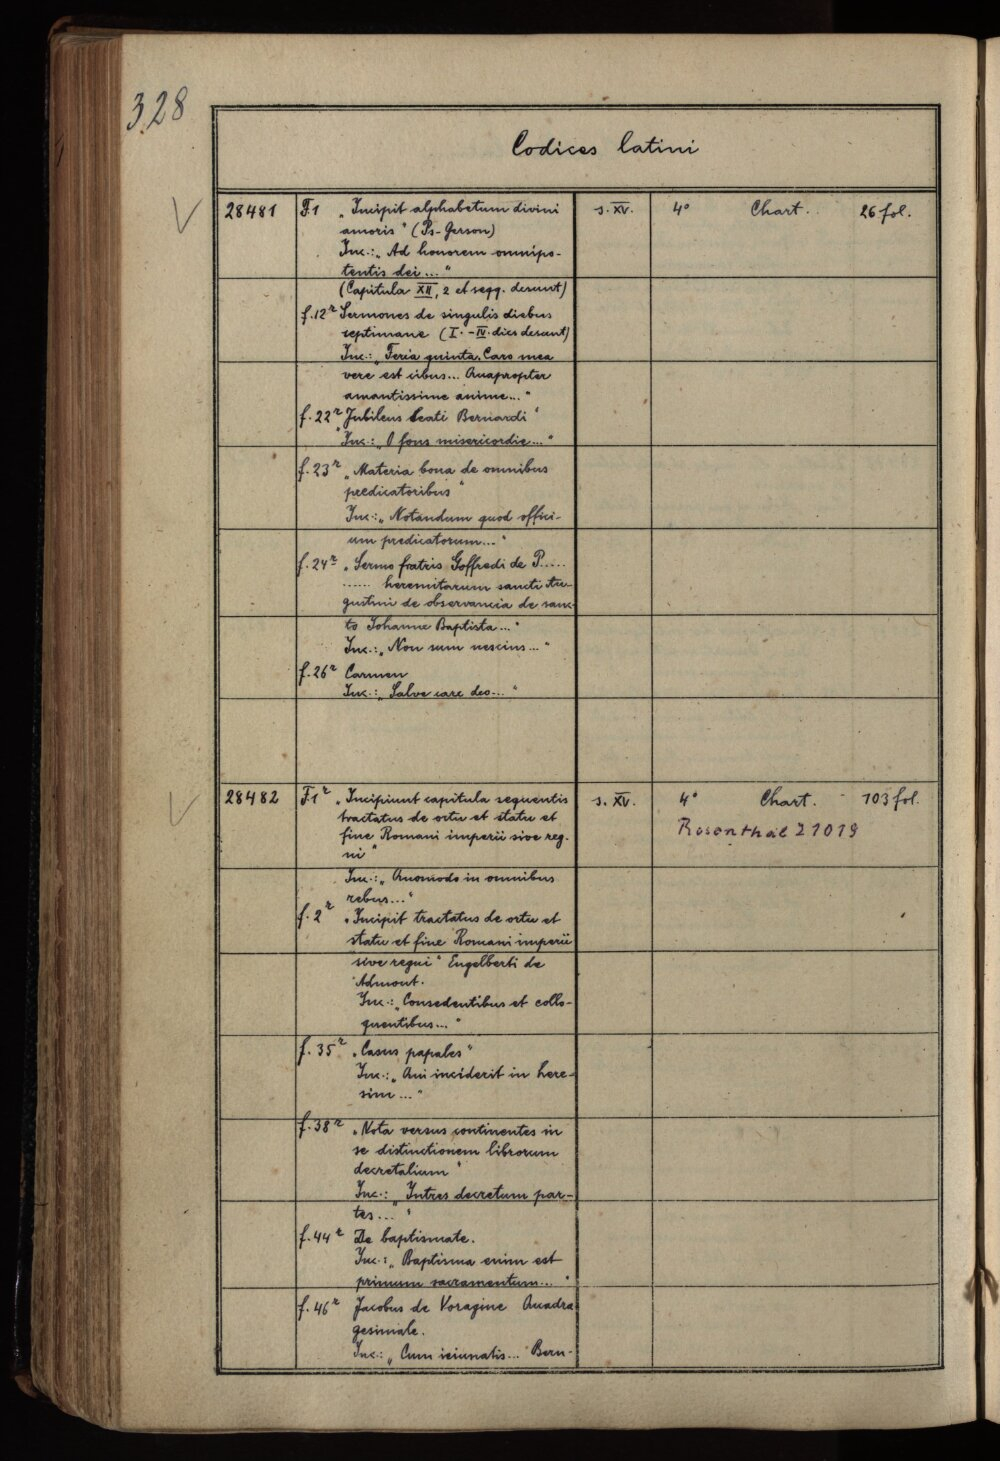 328
Codices latini
28481 F.1 „Incipit alphabetum divini s. XV. 4° Chart. 26 fol.
amoris“ (Ps-Gerson)
Inc.: „Ad honorem omnipo-
tentis dei...“
(Capitula XII, 2 et seqq. desunt)
f. 12r Sermones de singulis diebus
septimane (I. - IV. dies desunt)
Inc.: „Feria quinta. Caro mea
vere est cibus... Quapropter
amantissime anime...“
f. 22r „Jubileus beati Bernardi“
Inc.: „O fons misericordie...“
f. 23r „Materia bona de omnibus
predicatoribus“
Inc.: „Notandum quod offici-
um predicatorum...“
f. 24r „Sermo fratris Goffredi de P.....
...... heremitarum sancti Au-
gustini de observancia de sanc-
to Johanne Baptista...“
Inc.: „Non sum nescius...“
f. 26r Carmen
Inc.: „Salve care deo...“
28482 F1r „Incipiunt capitula sequentis s. XV. 4° Chart. 103 fol.
tractatus de ortu et statu et Rosenthal 21019
fine Romani imperii sive reg-
ni“
Inc.: „Quomodo in omnibus
rebus...“
f. 2r „Incipit tractatus de ortu et
statu et fine Romani imperii
sive regni“ Engelberti de
Admont.
Inc.: „Consedentibus et collo-
quentibus...“
f. 35r „Casus papales“
Inc.: „Qui inciderit in here-
sim...“
f. 38r „Nota versus continentes in
se distinctionem librorum
decretalium“
Inc.: „Intres decretum par-
tes...“
f. 44r De baptismate.
Inc.: „Baptisma enim est
primum sacramentum...“
f. 46r Jacobus de Voragine Quadra
gesimale.
Inc.: „Cum ieiunatis... Bern-